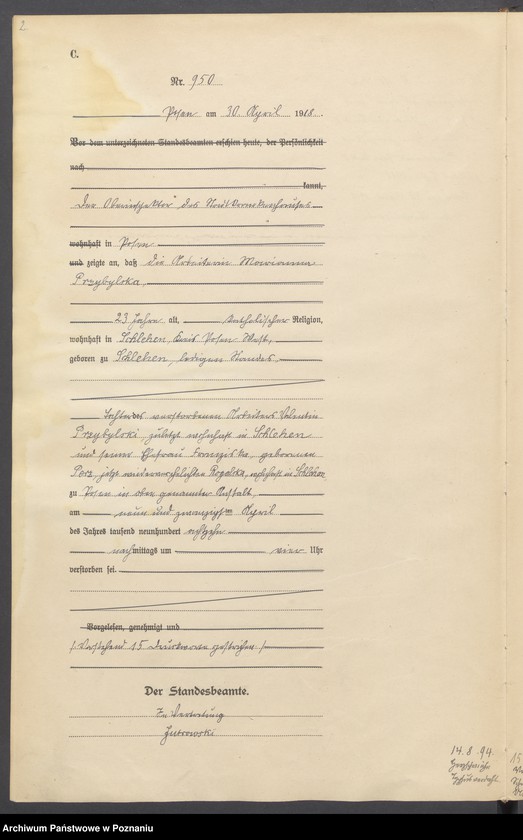 2
C.
Nr. 950
Posen am 30. April 1918.
Vor dem unterzeichneten Standesbeamten erschien heute, der Persönlichkeit
nach
kannt,
Der Oberinspektor des Stadtkrankenhauses
wohnhaft in Posen
und zeigte an, daß die Arbeiterin Marianna
Przybylska,
23 Jahre alt, katholischer Religion,
wohnhaft in Schlehen, Kreis Posen West,
geboren zu Schlehen, ledigen Standes
Tochter des verstorbenen Arbeiters Valentin
Przybylski, zuletzt wohnhaft in Schlehen
und seiner Ehefrau Franziska, geborenen
jetzt wiederverehelichten Rogalska, wohnhaft in Schlehen,
zu Posen in oben genannter Anstalt,
am neun und zwanzigsten April
des Jahres tausend neunhundert achtzehn
nachmittags um vier Uhr
verstorben sei.
Vorgelesen, genehmigt und
/ Vorstehend 15 Druckworte gestrichen /
Der Standesbeamte.
In Vertretung
14. 8. 94.
Archiwum Państwowe w Poznaniu